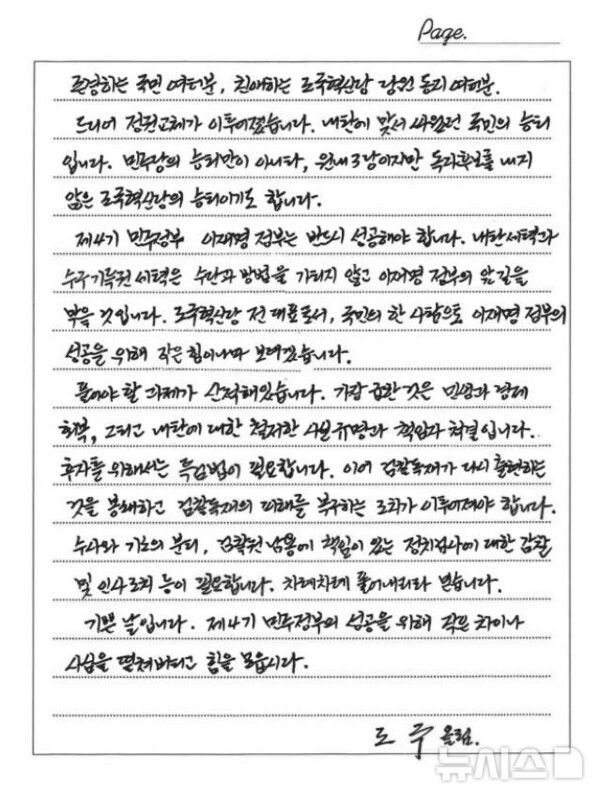 Page.
존경하는 국민 여러분, 친애하는 조국혁신당 당원 동지 여러분.
드디어 정권교체가 이루어졌습니다. 내란에 맞서 싸워던 국민의 승리
입니다. 민주당의 승리만이 아니라, 원내 3당이지만 독자후보를 내지
않은 조국혁신당의 승리이기도 합니다.
제4기 민주정부 이재명 정부는 반드시 성공해야 합니다. 내란세력과
수구기득권 세력은 수단과 방법을 가리지 않고 이재명 정부의 앞길을
막을 것입니다. 조국혁신당 전 대표로서, 국민의 한 사람으로 이재명 정부의
성공을 위해 작은 힘이나마 보태겠습니다.
풀어야 할 과제가 산적해있습니다. 가장 급한 것은 민생과 경제
회복, 그리고 내란에 대한 철저한 진상규명과 책임자 처벌입니다.
후자를 위해서는 특검법이 필요합니다. 이어 검찰독재가 다시 출현하는
것을 봉쇄하고 검찰독재의 피해를 복구하는 조치가 이루어져야 합니다.
수사와 기소의 분리, 검찰권 남용에 책임이 있는 정치검사에 대한 감찰
및 인사조치 등이 필요합니다. 차례차례 풀어내리라 믿습니다.
기쁜 날입니다. 제4기 민주정부의 성공을 위해 작은 차이나
사심을 떨쳐버리고 힘을 모읍시다.
조 국 올림.
뉴시스